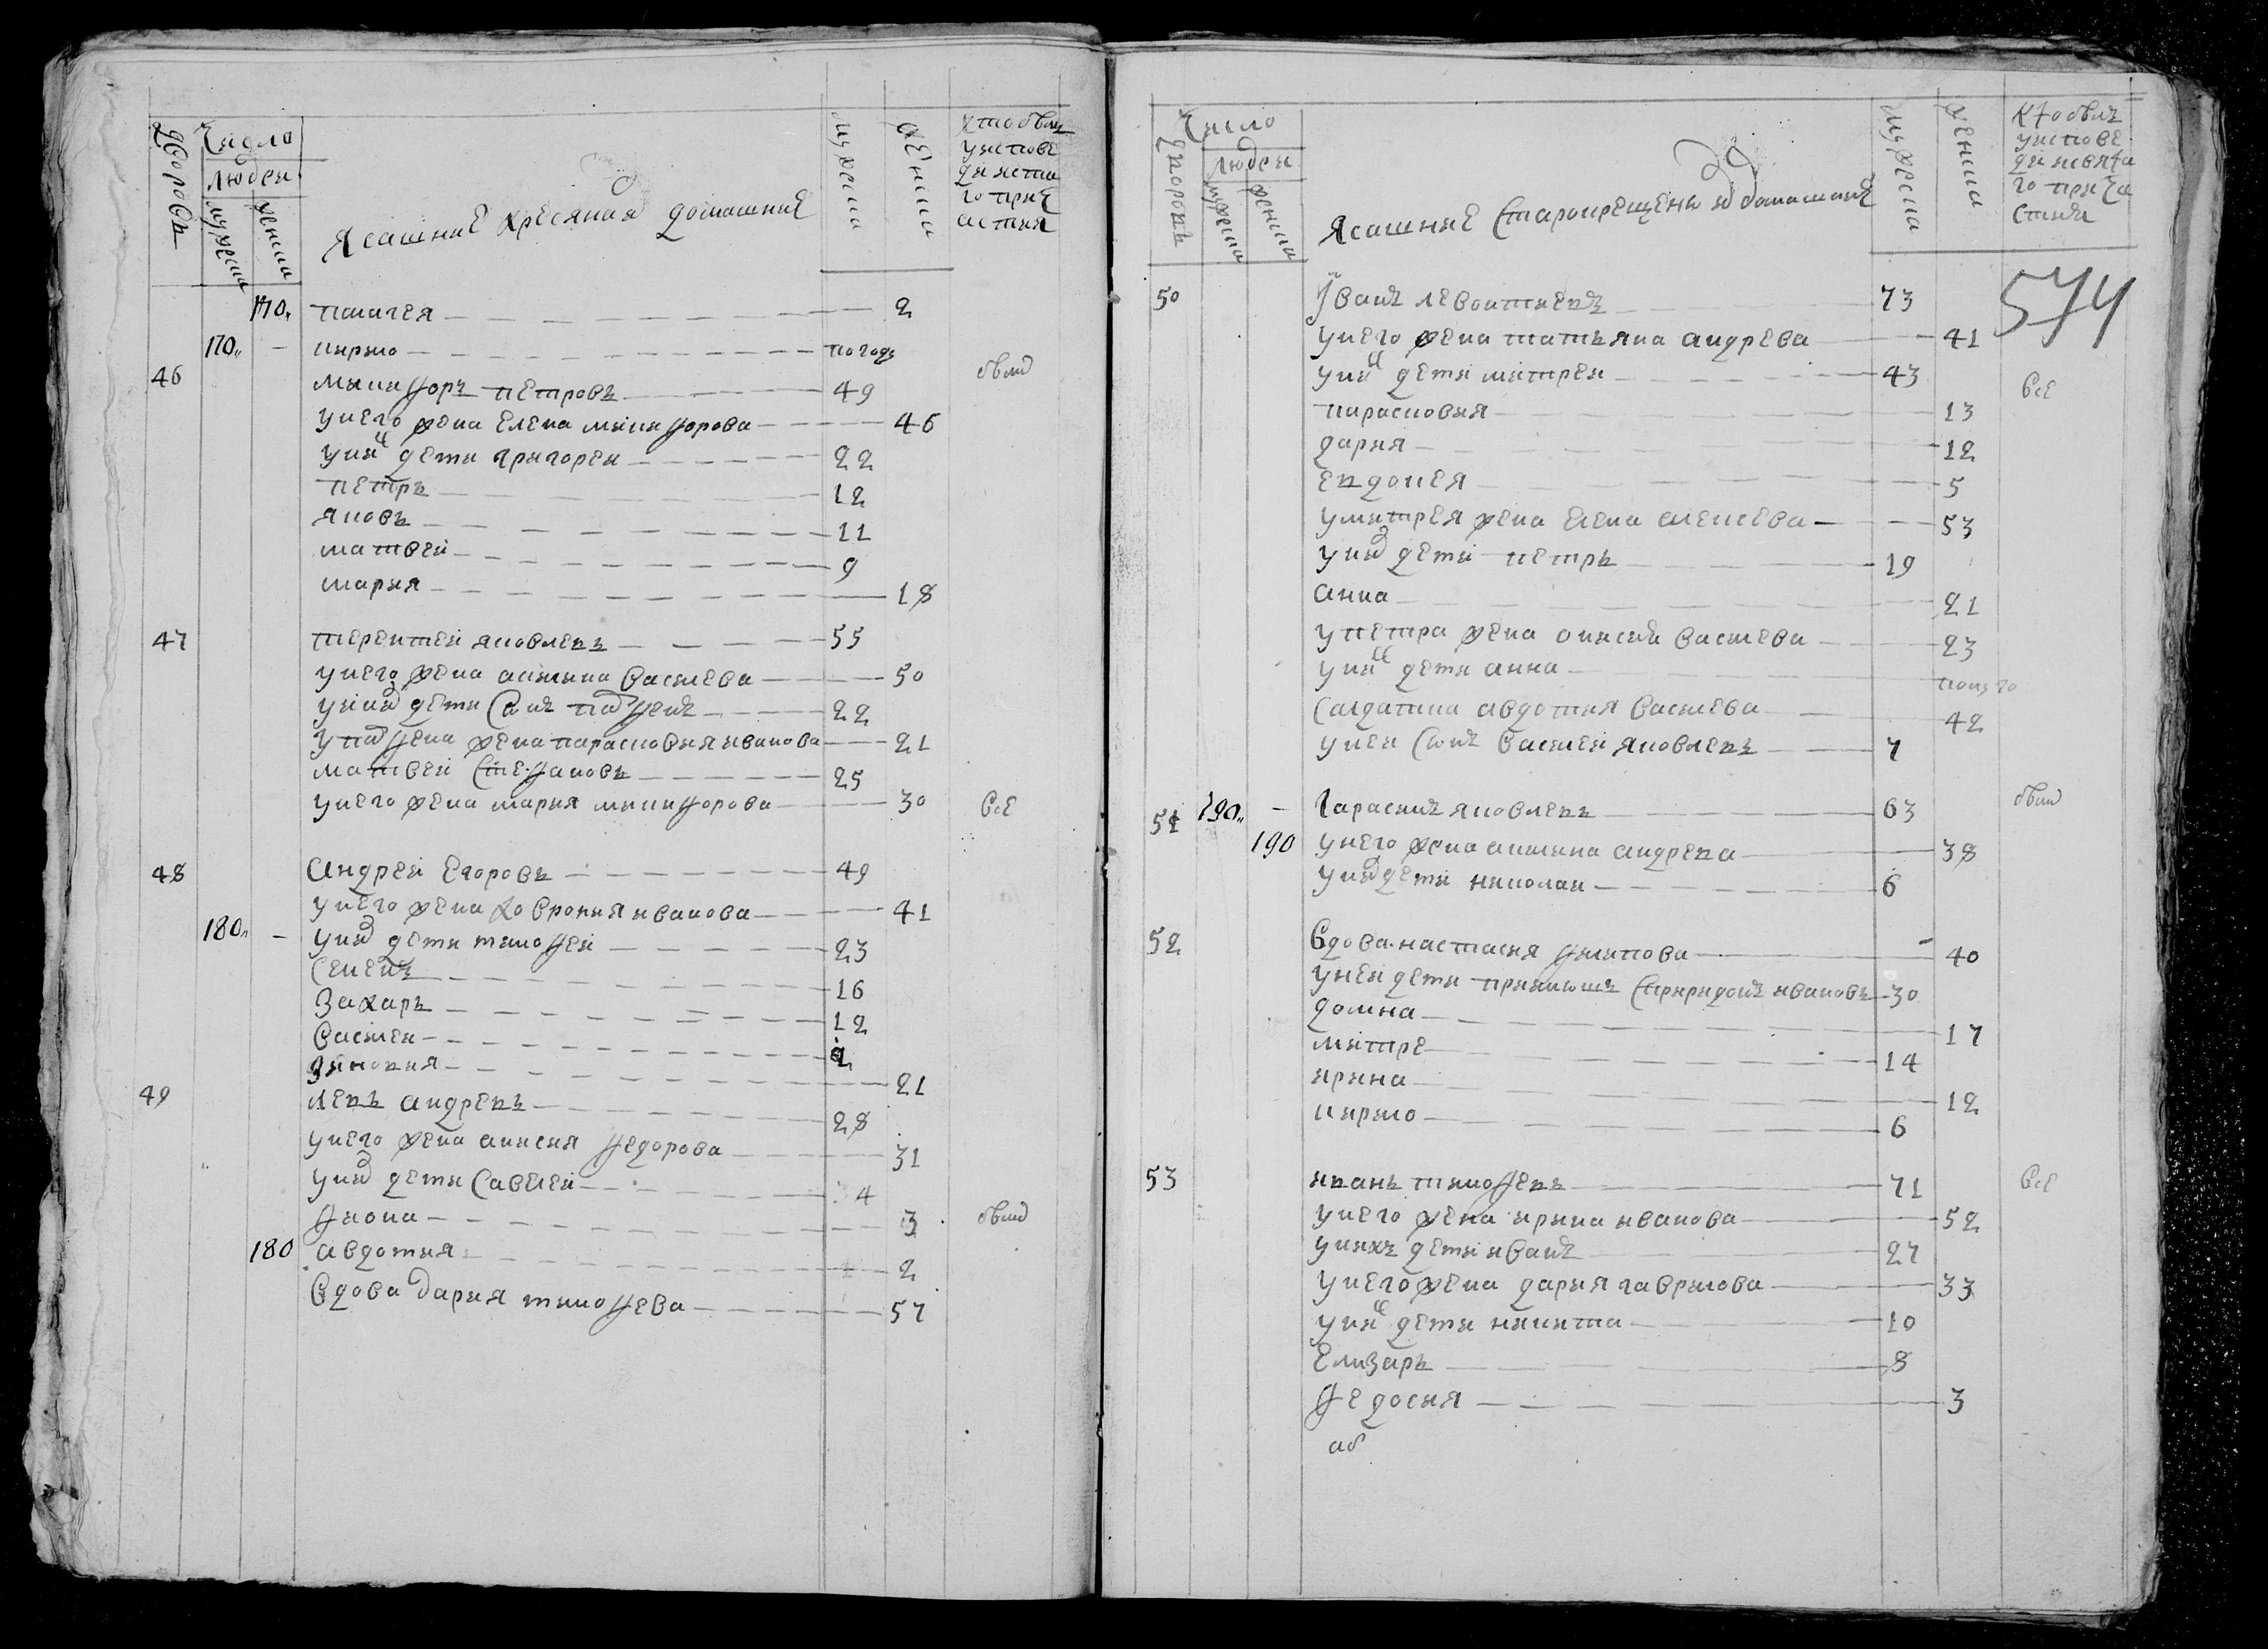 дворовъ
Число
людеи
мужеска
женска
Ясашние кресяная домашние
мужеска
женска
кто были
у испове
ди иста
го прич
астия
170 пилагея 2
170 кирило по году
46 микифоръ петровъ 49 были
у него жена елена микифорова 46
у них дети григореи 22
петръ 12
яковъ 11
матвеи 9
мария 18
47 терентеи яковлевъ 55
у него жена акилина василева 50
у них дети сынъ парфенъ 22
у парфена жена парасковия иванова 21
матвеи степановъ 25
у него жена мария микифорова 30 все
48 Андреи Егоровъ 49
у него жена ховрония иванова 41
180 у них дети тимофеи 23
семенъ 16
Захаръ 12
василеи 2
зиновия 21
49 левъ андревъ 28
у него жена аксиня федорова 31
у них дети савелеи 4
фиона 3 были
180 авдотия 2
вдова дария тимофева 57
дворовъ
Число
людеи
мужеска
женска
Ясашние старокрещены и домашние
мужеска
женска
кто былъ
у испове
ди и свята
го прича
стия
574
50 Иванъ левонтиевъ 73
у него жена татьяна андрева 41
у них дети митреи 43 все
парасковия 13
дария 12
евдокея 5
у митрея жена елена алексева 53
у них дети петръ 19
анна 21
у петра жена аксиня василева 23
у них дети анна полуго
салдатка авдотия василева 42
у неи сынъ василеи яковлевъ 7
51 190 Гарасимъ яковлевъ 63 были
190 у него жена акилина андрева 38
у них дети николаи 6
52 Вдова настасия филипова 40
у неи дети приимышъ спиридонъ ивановъ 30
домна 17
митре 14
ирина 12
кирило 6
53 иванъ тимофевъ 71 все
у него жена ирина иванова 52
у нихъ дети иванъ 27
у него жена дария гаврилова 33
у них дети никита 10
Елизаръ 8
федосия 3
аб